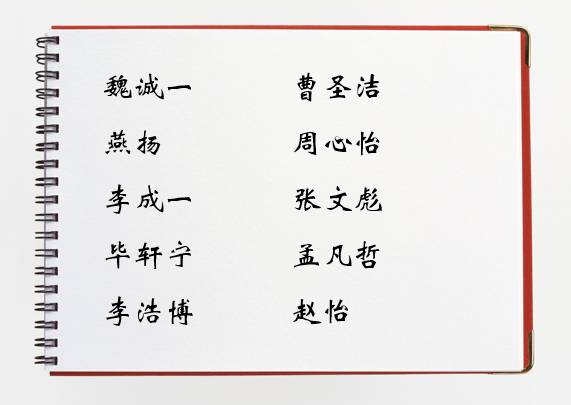 魏诚一 曹圣洁
燕扬 周心怡
李成一 张文彪
毕轩宁 孟凡哲
李浩博 赵怡